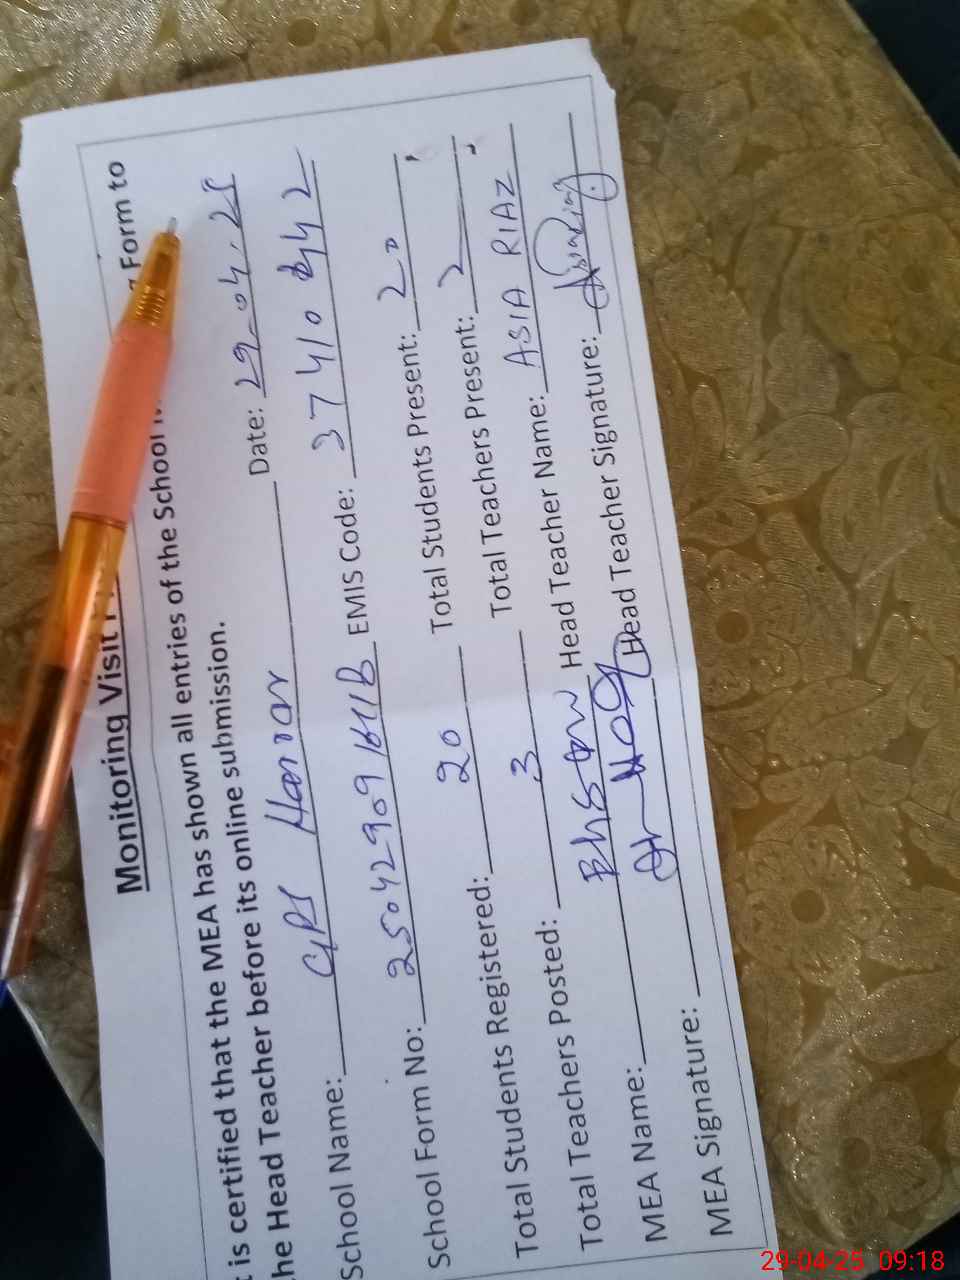 Monitoring Visit Form to
is certified that the MEA has shown all entries of the School
he Head Teacher before its online submission.
School Name: GPS Date: 29-04-25
School Form No: EMIS Code: 37410442
Total Students Registered: 20 Total Students Present: 20
Total Teachers Posted: 3 Total Teachers Present: 2
MEA Name: Head Teacher Name: ASIA RIAZ
MEA Signature: Head Teacher Signature:
29-04-25 09:18